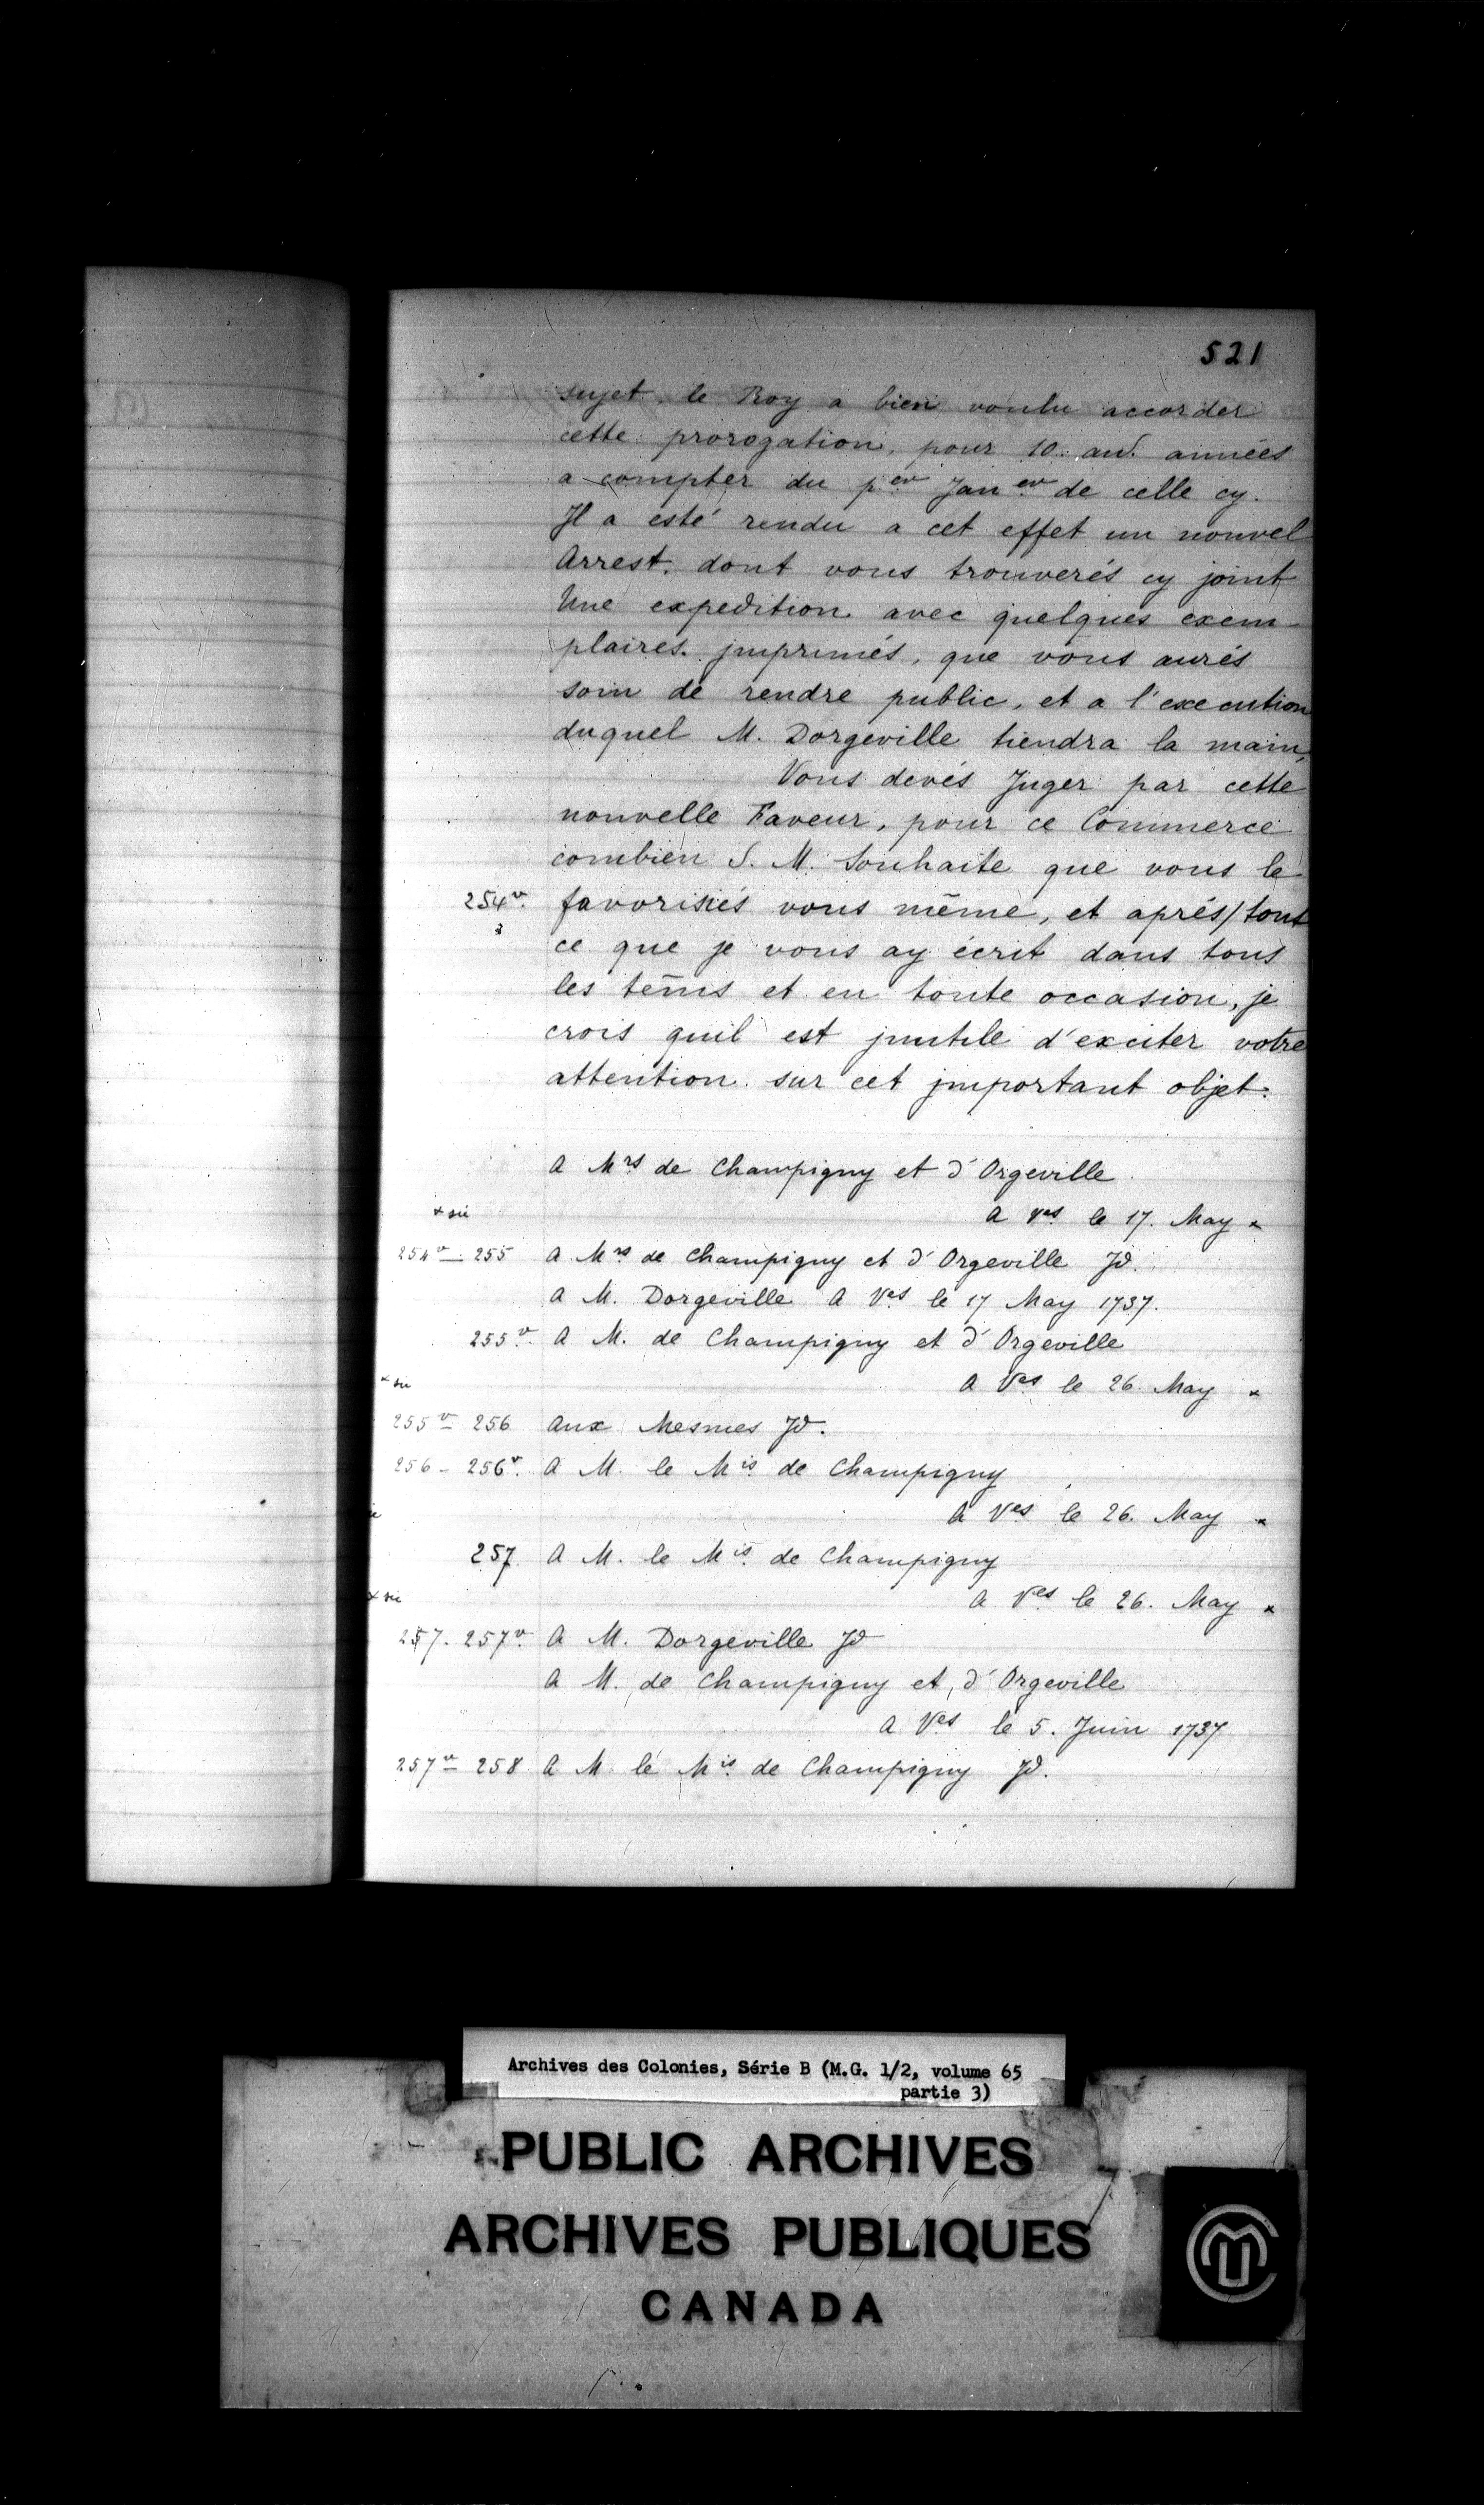 521
sujet, le Roy a bien voulu accorder
cette prorogation, pour 10. années
a compter du per Janer de celle cy.
Jl a esté rendu a cet effet un nouvel
Arrest. dont vous trouverés cy joint
Une expedition avec quelques exem-
plaires. jmprimés, que vous aurés
soin de rendre public, et a l'execution
duquel M. Dorgeville tiendra la main,
Vous devés Juger par cette
nouvelle Faveur, pour ce Commerce
combien S. M. souhaite que vous le
254v. favorisiés vous même, et aprés/tout
ce que je vous ay écrit dans tous
les tems et en toute occasion, je
crois quil est jnutile d'exciter votre
attention sur cet jmportant objet.
A Mrs de Champigny et d'Orgeville
x sic A Ves le 17. May x
254v - 255 A Mrs de Champigny et d'Orgeville Jd.
A M. Dorgeville A Ves le 17 May 1737.
255v. A M. de Champigny et d'Orgeville
x sic A Ves le 26. May x
255v - 256 aux Mesmes Jd.
256 - 256v. A M. le Mis de Champigny
A Ves le 26. May x
257. A M. le Mis de Champigny
x sic A Ves le 26. May x
257. 257v. A M. Dorgeville Jd
A M. de Champigny et d'Orgeville
A Ves le 5. Juin 1737
257v - 258 A M le Mis de Champigny Jd.
Archives des Colonies, Série B (M.G. 1/2, volume 65
partie 3)
PUBLIC ARCHIVES
ARCHIVES PUBLIQUES
CANADA